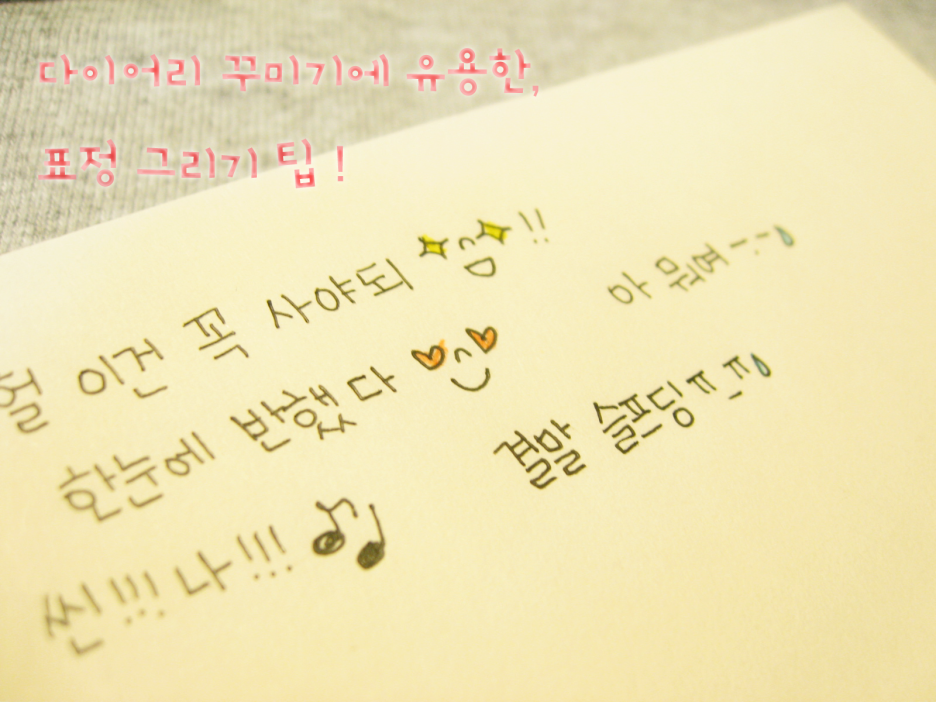 다이어리 꾸미기에 유용한,
표정 그리기 팁 !
이건 꼭 사야되 !!
한눈에 반했다
씬!!! 나!!!
아 뭐여
결말 슬프딩 ㅠㅠ